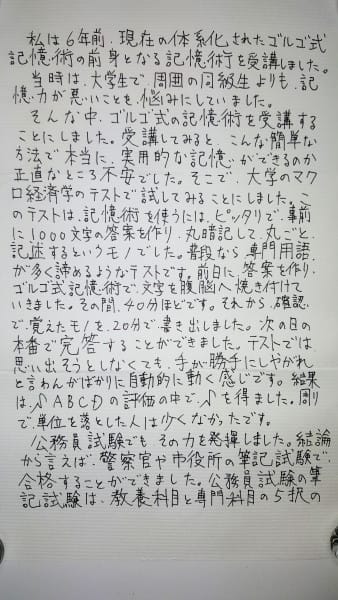 私は6年前、現在の体系化されたゴルゴ式
記憶術の前身となる記憶術を受講しました。
当時は、大学生で、周囲の同級生よりも、記
憶力が悪いことを、悩みにしていました。
そんな中、ゴルゴ式の記憶術を受講する
ことにしました。受講してみると、こんな簡単な
方法で本当に、実用的な記憶ができるのか
正直なところ不安でした。そこで、大学のマク
ロ経済学のテストで試してみることにしました。こ
のテストは、記憶術を使うには、ピッタリで、事前
に1000文字の答案を作り、丸暗記して、丸ごと、
記述するというモノでした。普段なら専門用語
が多く諦めるようなテストです。前日に、答案を作り、
ゴルゴ式記憶術で、文字を腹脳へ焼き付けて
いきました。その間、40分ほどです。それから、確認
で、覚えたモノを、20分で書き出しました。次の日の
本番で完答することができました。テストでは
思い出そうとしなくても、手が勝手にしやがれ
と言わんがばかりに自動的に動く感じです。結果
は、SABCDの評価の中で、Sを得ました。周り
で単位を落とした人は少くなかったです。
公務員試験でも その力を発揮しました。結論
から言えば、警察官や市役所の筆記試験で、
合格することができました。公務員試験の筆
記試験は、教養科目と専門科目の5択の